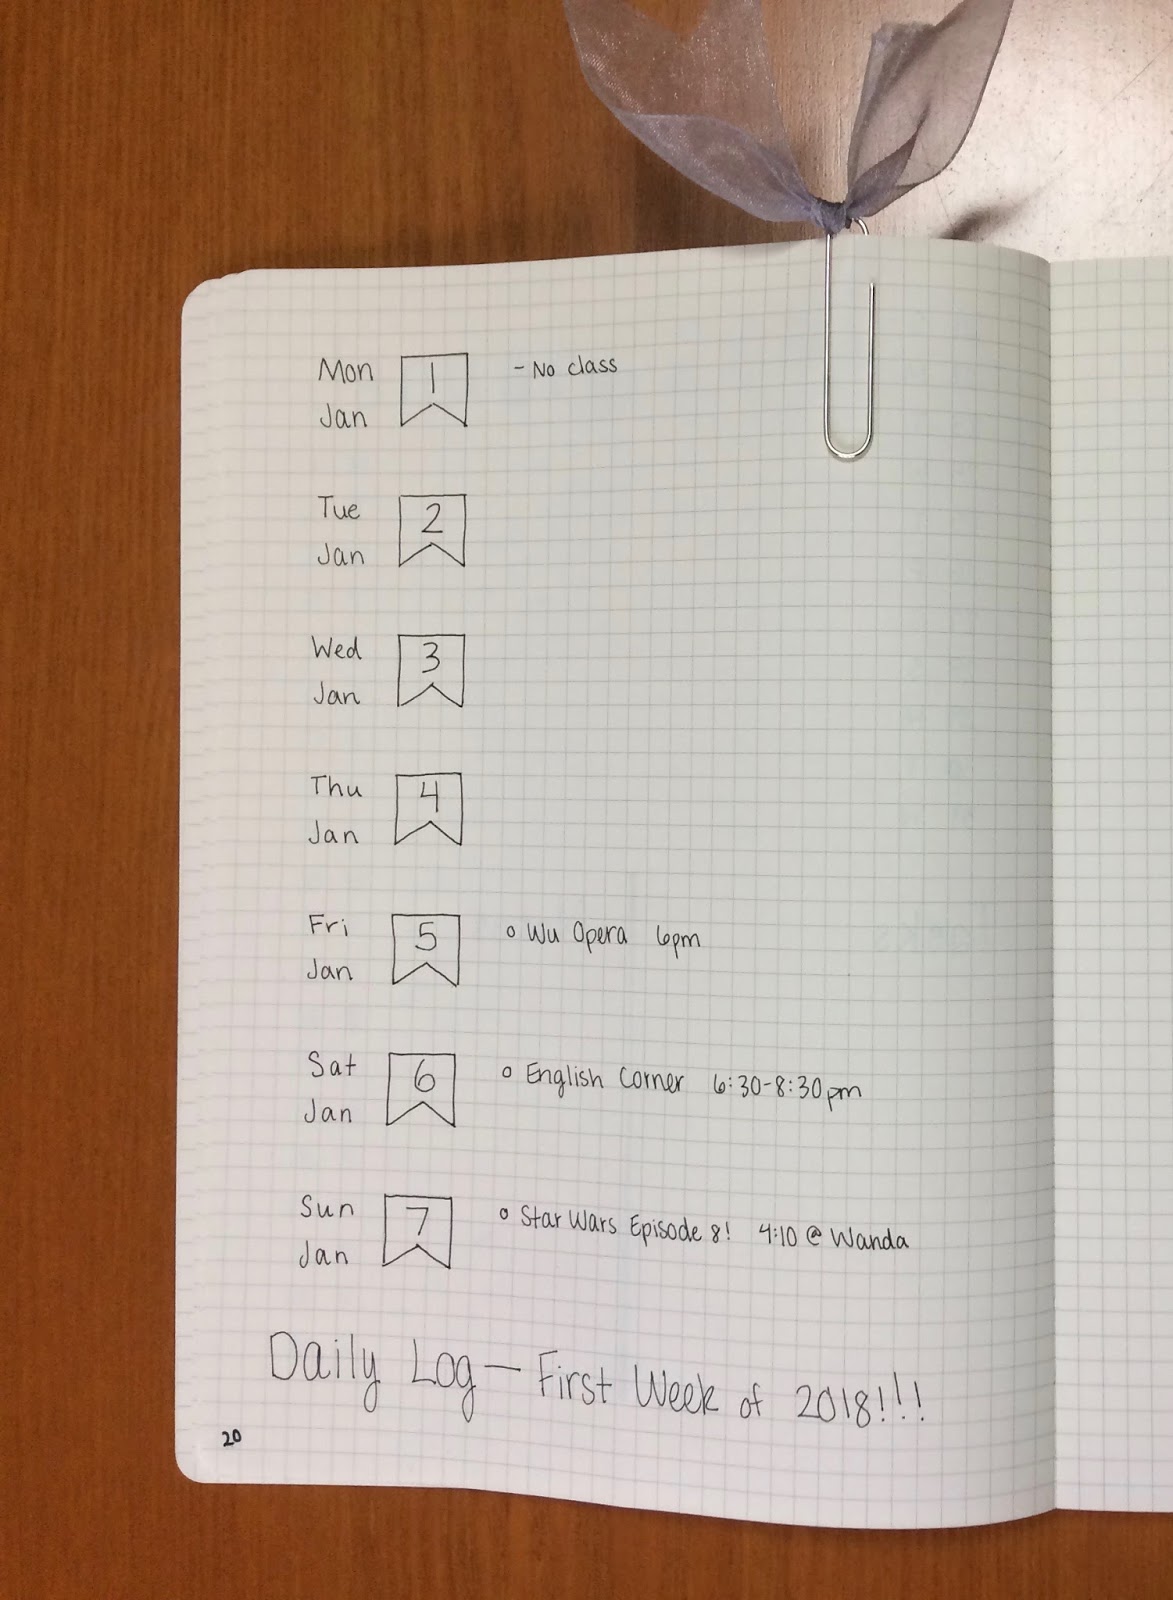 Mon 1 - No class
Jan
Tue 2
Jan
Wed 3
Jan
Thu 4
Jan
Fri 5 o Wu Opera 6pm
Jan
Sat 6 o English Corner 6:30-8:30pm
Jan
Sun 7 o Star Wars Episode 8! 4:10 @ Wanda
Jan
Daily Log — First Week of 2018!!!
20